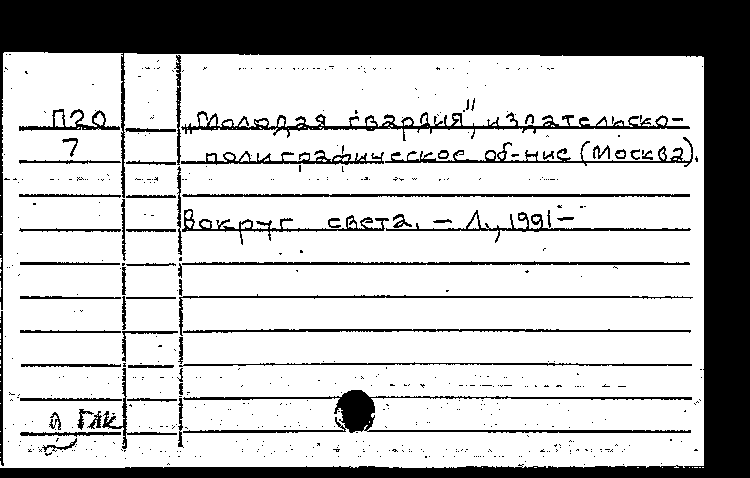 П20 „Молодая гвардия", издательско-
7 полиграфическое об-ние (Москва).
Вокруг света. – Л., 1991–
ГАК